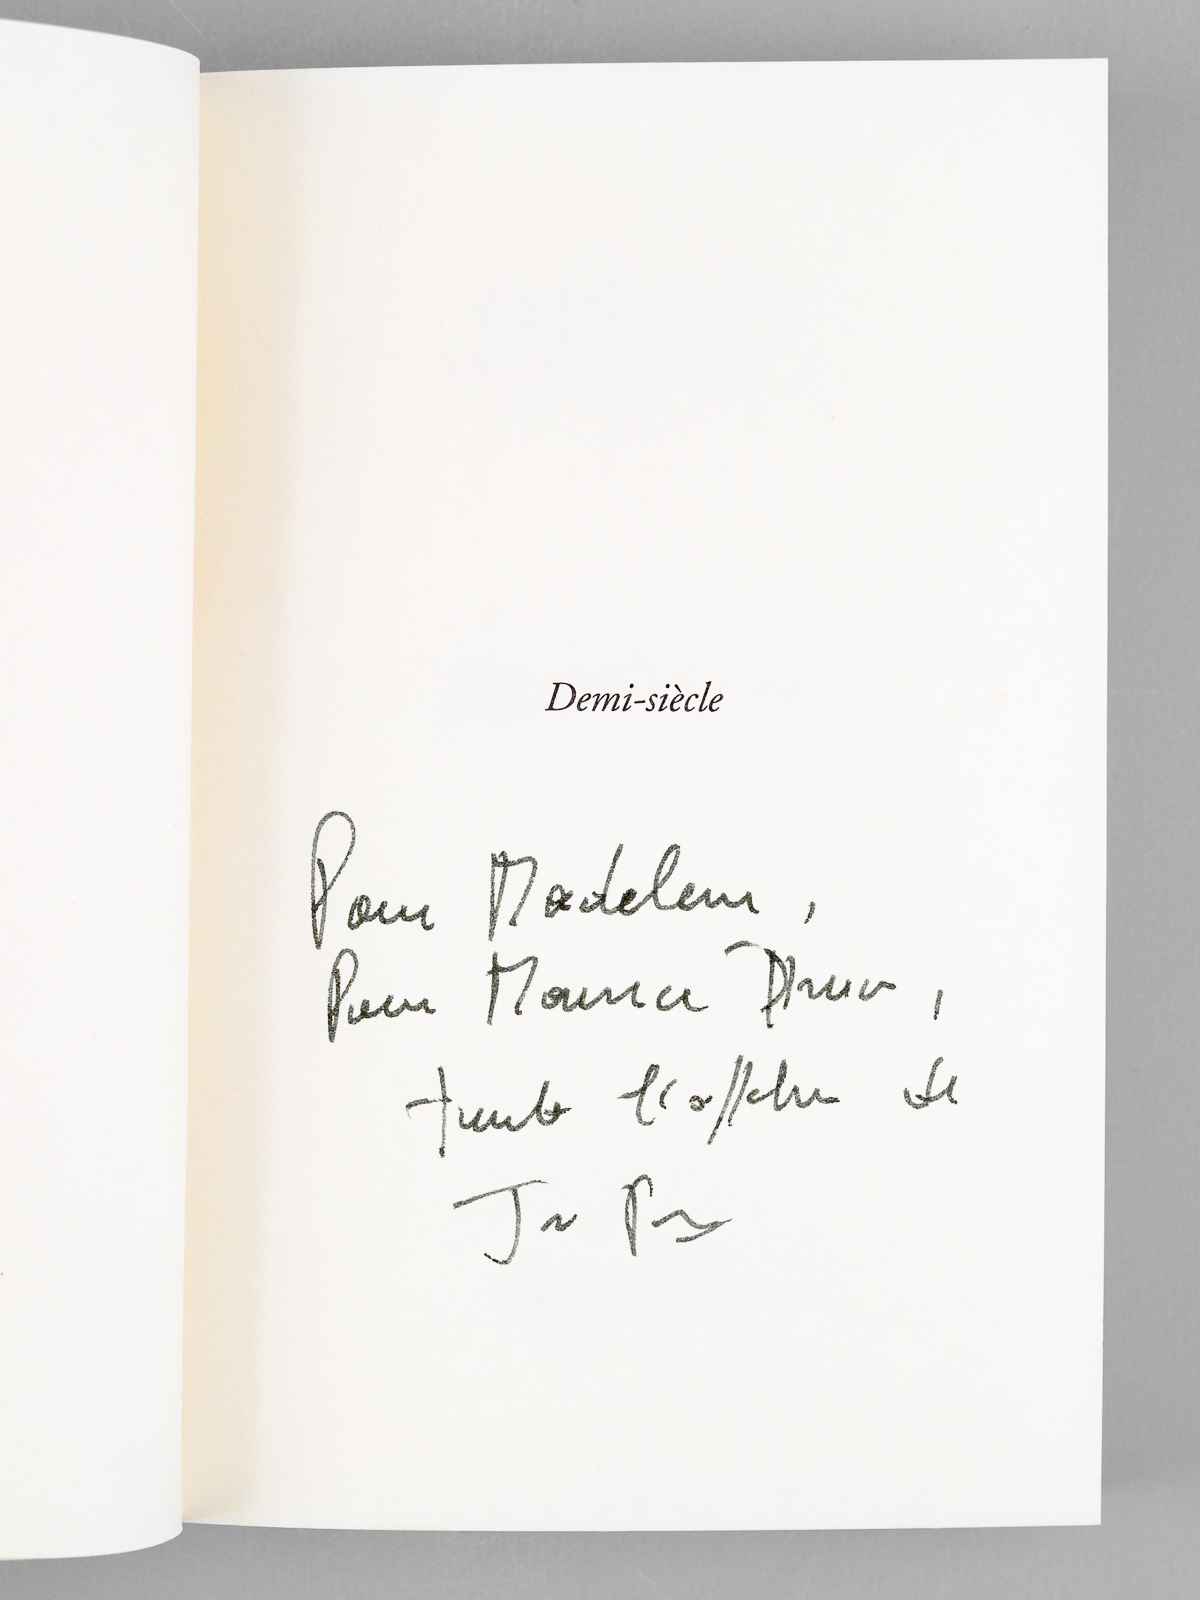 Demi-siècle
Pour Madeleine,
Pour Maurice Druon,
toute l'affection de